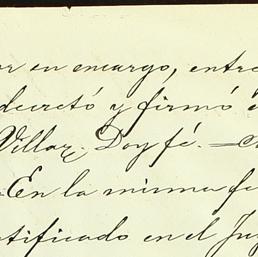 or en encargo, entre
decretó y firmó e
Villar. Doy fé.—
En la misma fe
tificado en el Juz